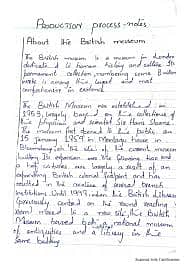 PRODUCTION process-notes
About the British museum
The British museum is a museum in London
dedicated to human history and culture. Its
permanent collection, numbering some 8 million
works is among the largest and most
comprehensive in existence
The British Museum was established in
1753, largely based on the collections of
the physician and scientist Sir Hans Sloane.
The museum first opened to the public on
15 January 1759 in Montagu House
Bloomsbury, on the site of the current museum
building. Its expansion over the following two and
a half centuries was largely a result of an
expanding British colonial footprint and has
resulted in the creation of several branch
institutions. Until 1997, when the British Library
(previously centred on the round reading
room moved to a new site, the British
Museum housed both a national museum
of antiquities and a library in the
same building